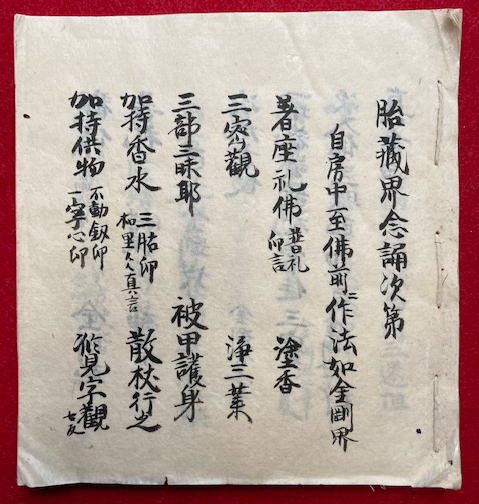 胎藏界念誦次第
自房中至佛前ニ作法如金剛界
著座礼佛 普礼印言 塗香
三密觀 浄三業
三部三昧耶 被甲護身
加持香水 三胎印 枳里八人真言 散杖行之
加持供物 不動釼印 一字心印 於見字觀 七反